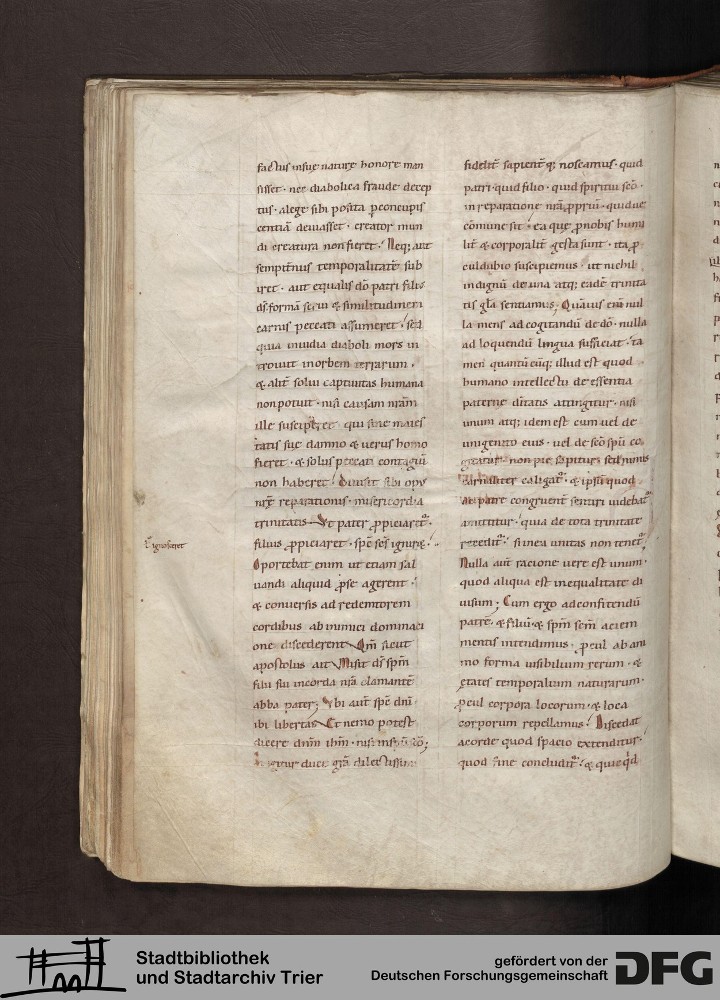 factus insue nature honore man
sisset · nec diabolica fraude decep
tus · alege sibi posita pconcupis
centiā deuiasset · creator mun
di creatura non fieret · Neq; aut
sempitnus temporalitatē sub
iret · aut equalis dō patri filius
di formā serui & similitudinem
carnis peccati assumeret · sed
quia inuidia diaboli mors in
troiuit inorbem terrarum ·
& alit̄ solui captiuitas humana
non potuit · nisi causam nr̄am
ille susciperet · qui sine maies
tatis sue damno & uerus homo
fieret · & solus peccati contagiū
non haberet · Diuisit sibi opus
nr̄e reparationis · misericordia
trinitatis · Vt pater ppiciaret̄ ·
filius ppiciaret · spc̄ scs̄ igniret ·
ignosceret
Oportebat enim ut etiam sal
uandi aliquid pse agerent ·
& conuersis ad redemtorem
cordibus ab inimici dominaci
one discederent · Qm̄ sicut
apostolus ait · Misit ds̄ spm̄
filii sui incorda nr̄a clamantē
abba pater; Vbi aut̄ spc̄ dni ·
ibi libertas · Et nemo potest
dicere dnm̄ ihm̄ · nisi inspu sc̄o;
igitur duce gr̄a dilectissimi
fidelit̄ sapient̄q; noscamus · quid
patri · quid filio · quid spiritui sc̄o ·
in reparatione nr̄a ppriū · quidue
cōmune sit · ea que pnobis humi
lit̄ & corporalit̄ gesta sunt · ita p
culdubio suscipiemus · ut nichil
indignū de una atq; eadē trinita
tis gl̄a sentiamus; Quāuis eni nul
la mens ad cogitandū de dō · nulla
ad loquendū lingua sufficiat · ta
men quantū cūq; illud est quod
humano intellectu de essentia
paterne dītatis attingitur · nisi
unum atq; idem est cum uel de
unigenito eius · uel de sc̄o spū co
gitatur · non pie sapitur · sed nimis
carnaliter caligat̄ · & ipsū quod
de patre congruent̄ sentiri uidebat̄
amittitur · quia de tota trinitate
receditur · si in ea unitas non tenet̄ ·
Nulla aut̄ racione uere est unum ·
quod aliqua est inequalitate di
uisum; Cum ergo ad confitendū
patrē · & filiū · & spm̄ scm̄ aciem
mentis intendimus · pcul ab ani
mo forma uisibilium rerum · &
ętates temporalium naturarum ·
pcul corpora locorum · & loca
corporum repellamus · Discedat
acorde quod spacio extenditur ·
quod fine concludit̄ · & quicqd
Stadtbibliothek
und Stadtarchiv Trier
gefördert von der
Deutschen Forschungsgemeinschaft
DFG